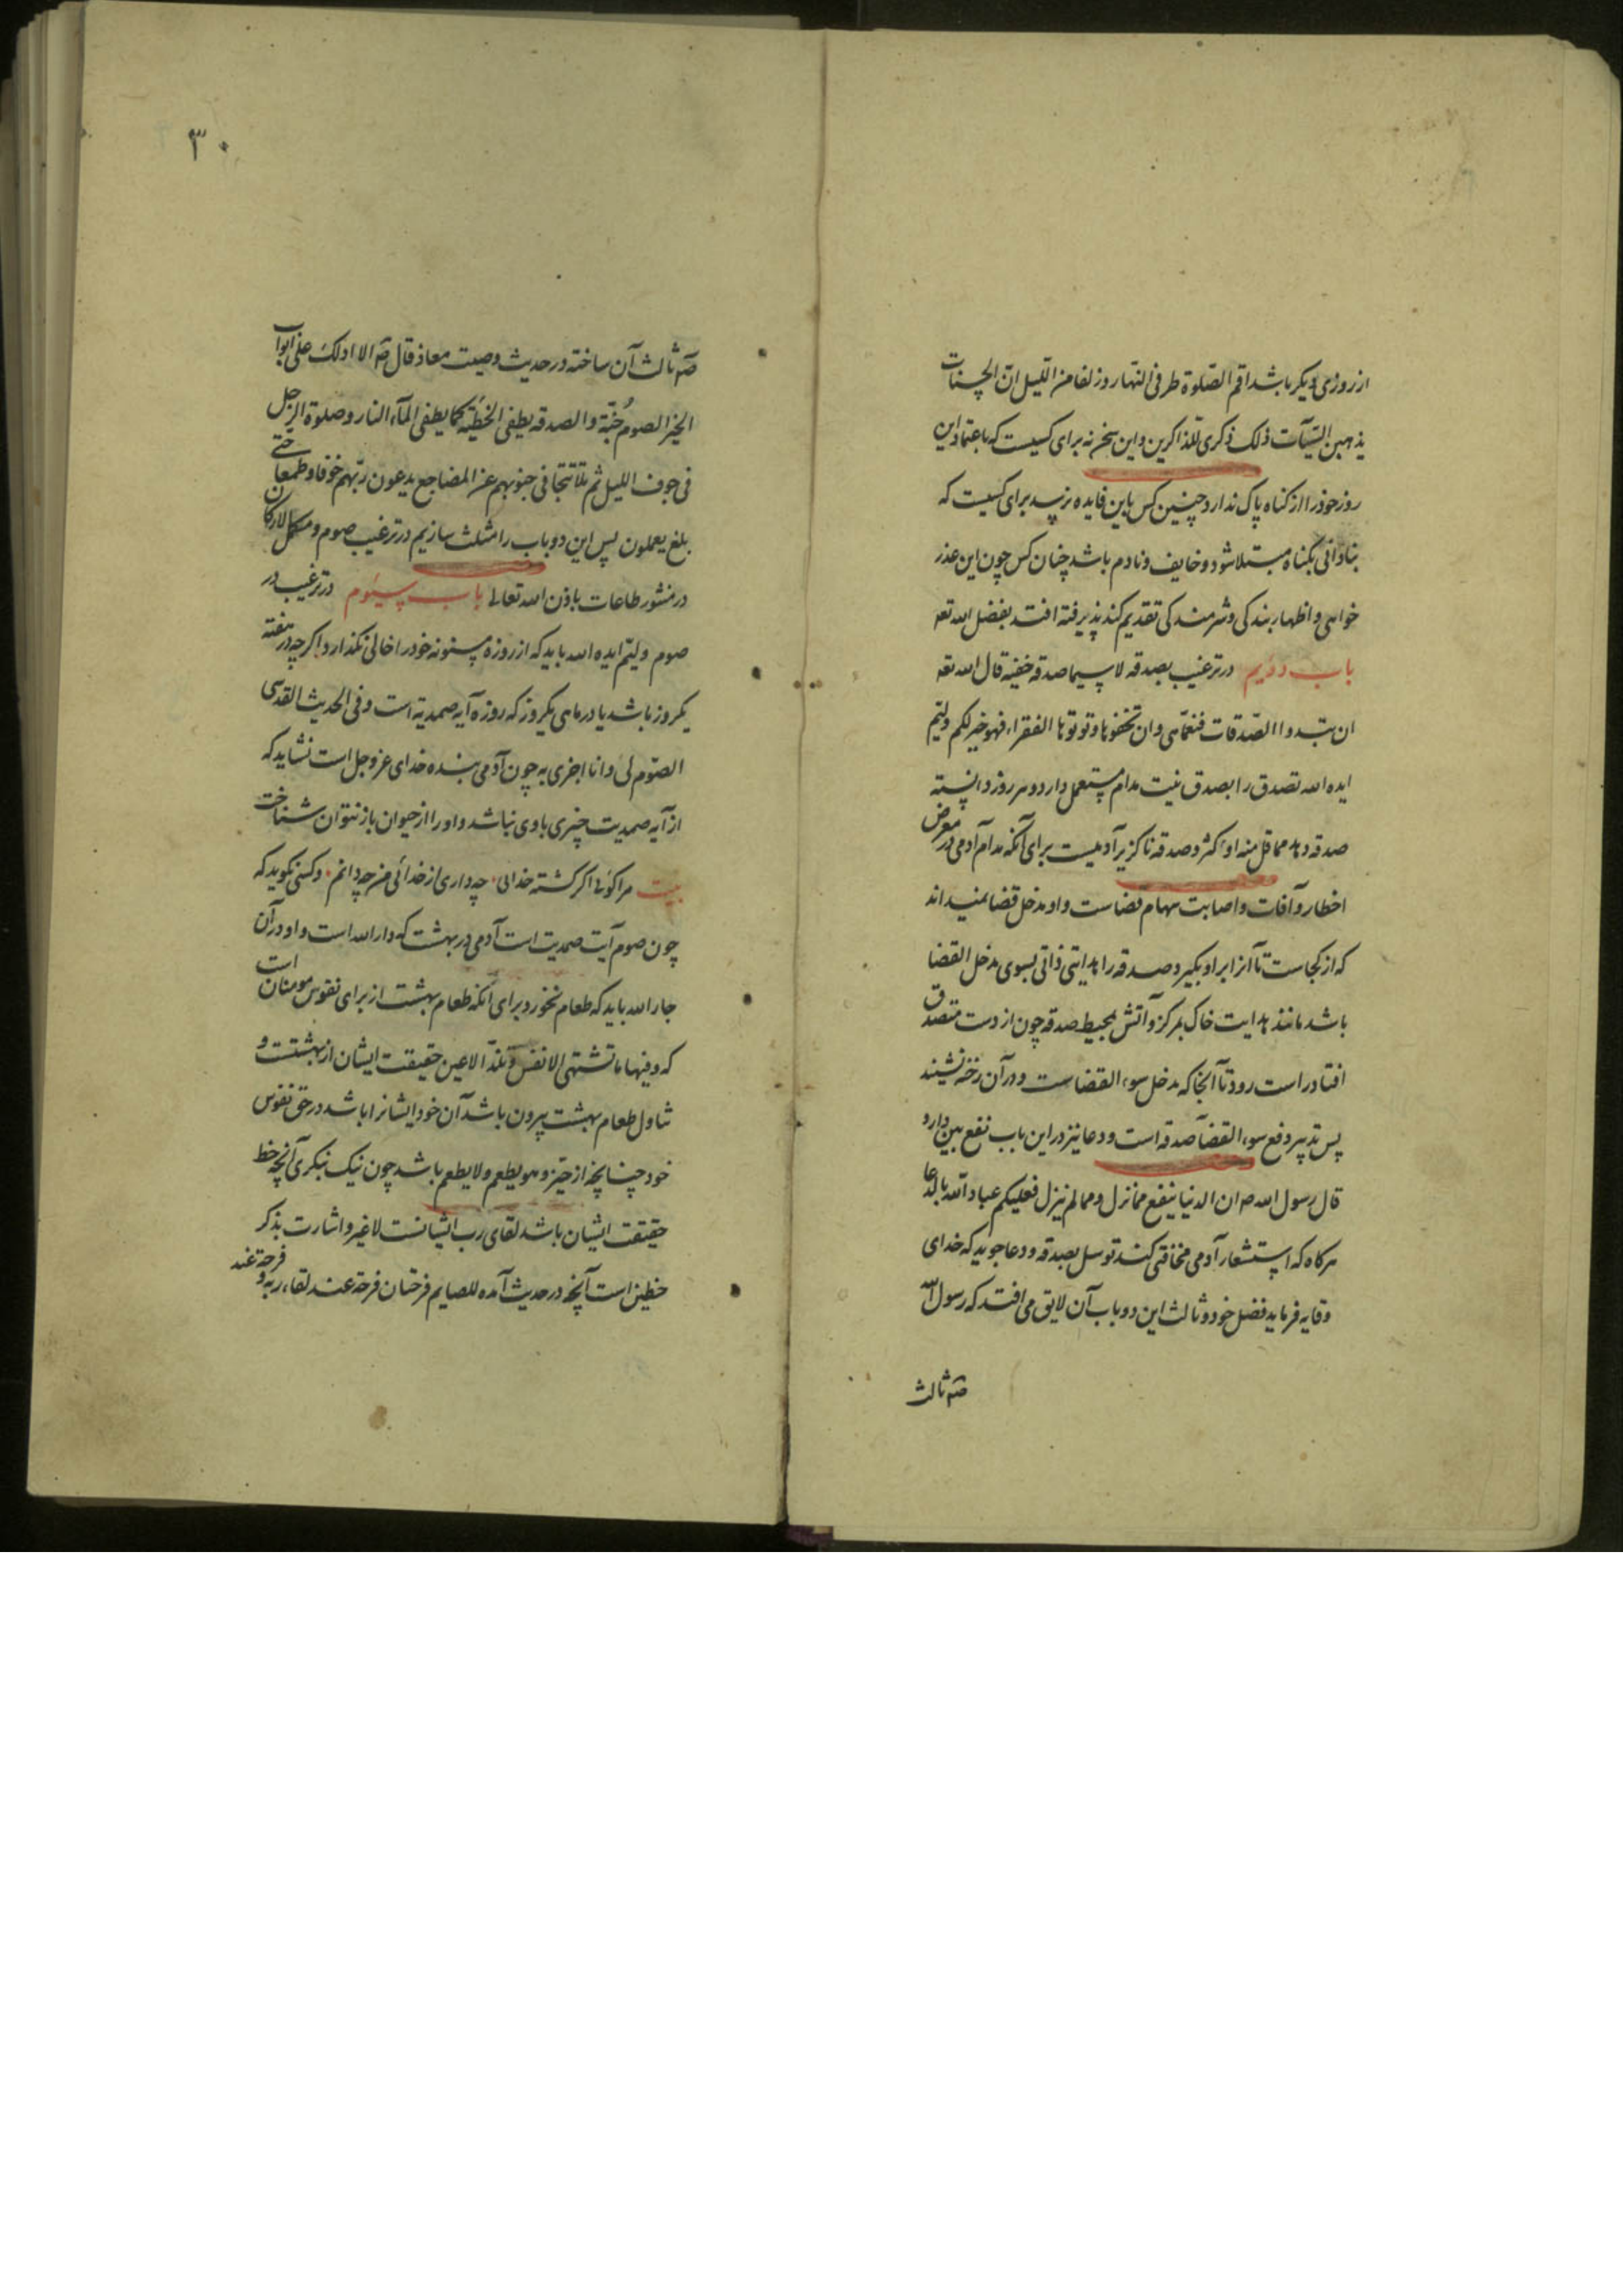 از روزی دیکر باشد اقم الصّلوة طرفی النهار و زلفا من اللیل انّ الحسنات
یذهبن السّیّآت ذلک ذکری للذاکرین و این سخن نه برای کسیست که باعتماد این
روز خود را از کناه پاک ندارد چنین کس باین فایده نرسد برای کسیست که
بنادانی بکناه مبتلا شود و خایف و نادم باشد چنان کس چون این عذر
خواهی و اظهار بندکی و شرمندکی تقدیم کند پذیرفته افتد بفضل الله تعه
باب دویم در ترغیب بصدقه لا سیما صدقه خفیه قال الله تعه
ان تبدوا الصّدقات فنعمّا هی و ان تخفوها و توتوها الفقراء فهو خیر لکم ولیّم
ایده الله تصدق را بصدق نیت مدام مستعمل دارد و هر روز دانسته
صدقه دهد مما قل منه او کثر و صدقه ناکزیر آدمیست برای آنکه مدام آدمی در معرض
اخطار و آفات و اصابت سهام قضاست و او مدخل قضا نمیداند
که از کجاست تا آنرا برو بکیرد و صدقه را هدایتی ذاتی بسوی مدخل القضا
باشد مانند هدایت خاک بمرکز و آتش بمحیط صدقه چون از دست متصدق
افتاد راست رود تا آنجا که مدخل سوء القضاست و در آن رخنه نشیند
پس تدبیر دفع سوء القضآ صدقه است و دعا نیز در این باب نفع بین دارد
قال رسول الله صه ان الدنیا ینفع مما نزل و مما لم ینزل فعلیکم عباد الله بالدعا
هرکاه که استشعار آدمی مخافتی کند توسل بصدقه و دعا جوید که خدای
وقایه فرماید بفضل خود و ثالث این دو باب آن لایق می افتد که رسول الله
صه ثالث
۳۰
صه ثالث آن ساخته در حدیث وصیت معاذ قال صه الا ادلک علی ابواب
الخیر الصوم جُنّة و الصدقه یطفی الخطیّه کما یطفی المآء النار و صلوة الرجل
فی جوف اللیل ثم تلا تتجافی جنوبهم عن المضاجع یدعون ربّهم خوفا و طمعا حتی
بلغ یعملون پس این دو باب را مثلث سازیم در ترغیب صوم و مکمل الارکان
در منشور طاعات باذن الله تعالی باب سیئوم در ترغیب در
صوم ولیّم ایده الله باید که از روزه مسنونه خود را خالی نکذارد اکرچه در هفته
یکروز باشد یا در ماهی یکروز که روزه آیه صمدیّة است و فی الحدیث القدسی
الصّوم لی و انا اجزی به چون آدمی بنده خدای عزوجل است نشاید که
از آیه صمدیت چیزی با وی نباشد و او را از حیوان باز نتوان شناخت
بیت مرا کوئی اکر کشته خدایی چه داری از خدائی من چه دانم و کسی نکوید که
چون صوم آیت صمدیت است آدمی در بهشت که دار الله است و او در آن
جار الله باید که طعام نخورد برای آنکه طعام بهشت از برای نفوس مومنان است
که و فیها ما تشتهی الانفس و تلذّ الاعین حقیقت ایشان از بهشتست و
تناول طعام بهشت بیرون باشد آن خود ایشانرا باشد در حق نفوس
خود چنانچه از حیّز و هو یطعم و لا یطعم باشد چون نیک بنکری آنچه حظ
حقیقت ایشان باشد لقای رب ایشانست لا غیر و اشارت بذکر
حظین است آنچه در حدیث آمده للصایم فرحتان فرحة عند لقاء ربه و فرحة عند